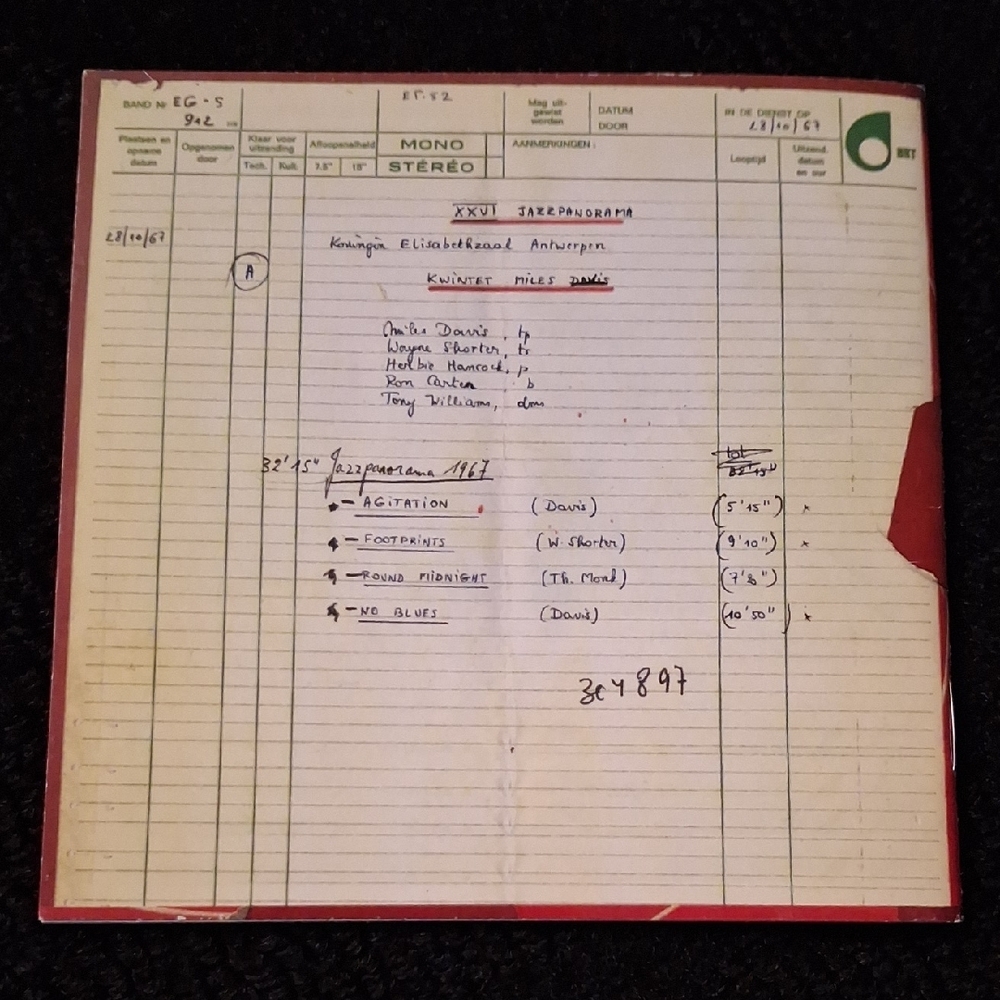 BAND Nr EG-S
912
EF.52
Mag uit-
gewist
worden
DATUM
DOOR
IN DE DIENST OP
28/10/67
BRT
Plaatsen en
opname
datum
Opgenomen
door
Klaar voor
uitzending
Tech. Kult.
Afloopsnelheid
7.5" 15"
MONO
STÉRÉO
AANMERKINGEN :
Looptijd
Uitzend.
datum
en uur
XXVI JAZZPANORAMA
28/10/67
Koningin Elisabethzaal Antwerpen
A
KWINTET MILES DAVIS
Miles Davis, tp
Wayne Shorter, ts
Herbie Hancock, p
Ron Carter b
Tony Williams, dms
tot
32'15" Jazzpanorama 1967 32'15"
- AGITATION (Davis) (5'15") x
- FOOTPRINTS (W. Shorter) (9'10") x
- ROUND MIDNIGHT (Th. Monk) (7'8")
- NO BLUES (Davis) (10'50") x
4897